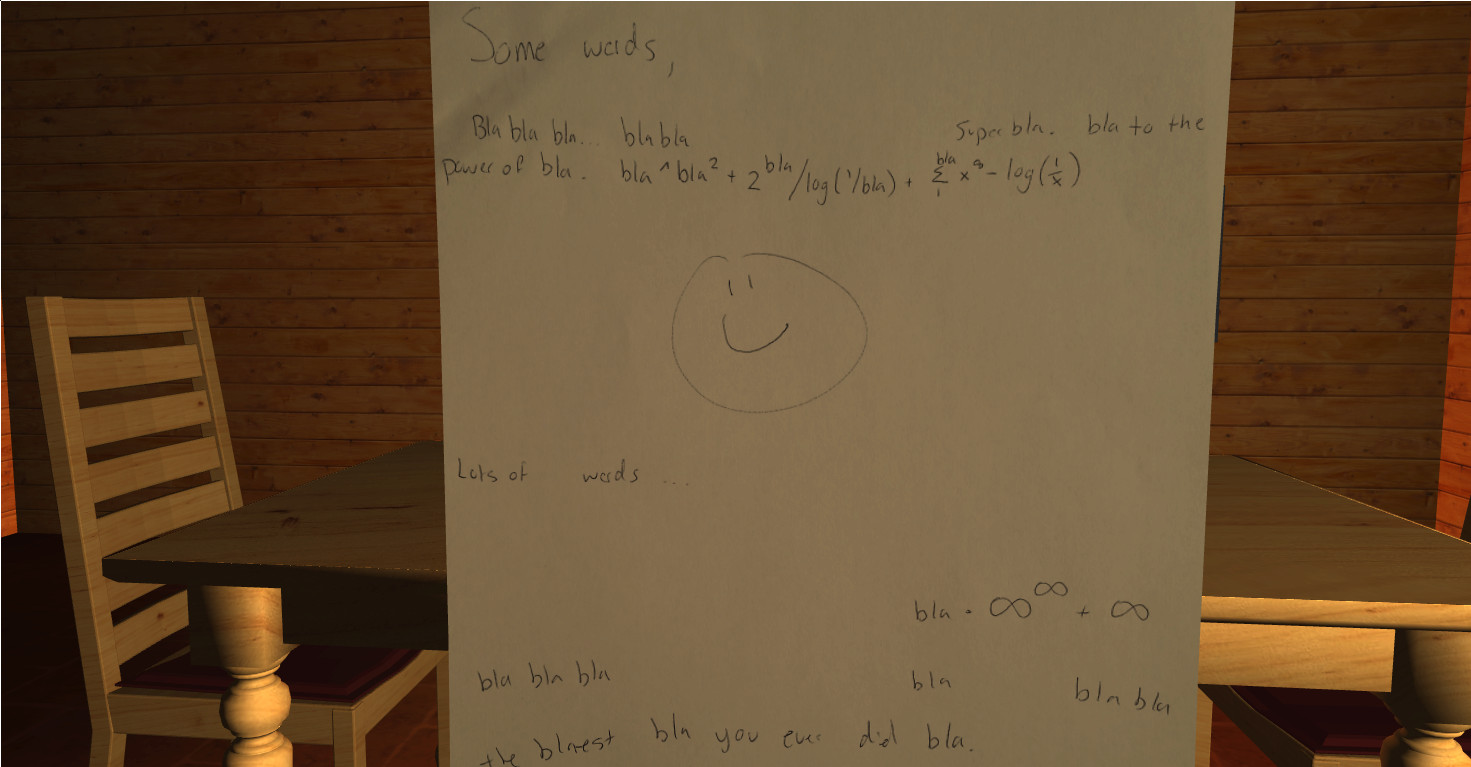 Some words,
Bla bla bla... bla bla Super bla. bla to the
power of bla. bla ^ bla² + 2^bla/log(1/bla) + ∑_1^bla x⁹ - log(1/x)
Lots of words ...
bla · ∞^∞ + ∞
bla bla bla bla bla bla
the blaest bla you ever did bla.